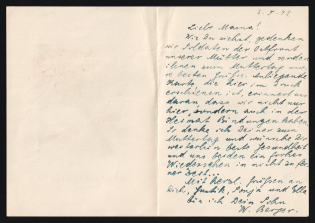 Liebe Mamma!
Wie Du siehst, gedenken
wir Soldaten der Ostfront
unserer Mütter und senden
ihnen zum Muttertag
besten Grüße. Anliegende
Karte die hier im Druck
erschienen ist, erinnert
daran dass wir nicht nur
hier, sondern auch in der
Heimat Bindungen haben
So denke ich Deiner zum
Muttertag und wünsche Dir
weiterhin beste Gesundheit
und uns beiden ein frohes
Wiedersehen in nicht
Mit herzl. Grüßen an
bin ich Dein Sohn
W. Berger.